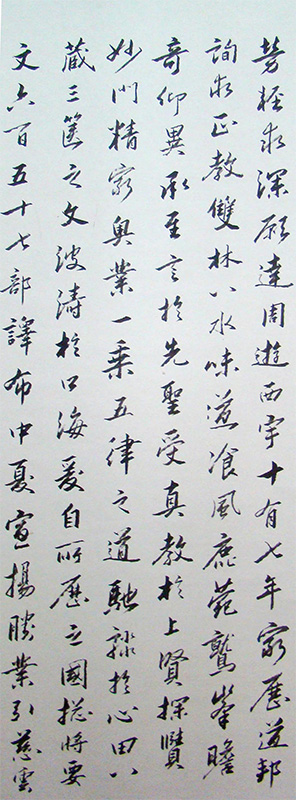 勞輕求深願達周遊西宇十有七年窮歷道邦
詢求正教雙林八水味道飡風鹿菀鷲峯瞻
奇仰異承至言於先聖受真教於上賢探賾
妙門精窮奧業一乘五律之道馳驟於心田八
藏三篋之文波濤於口海爰自所歷之國揔將要
文六百五十七部譯布中夏宣揚勝業引慈雲